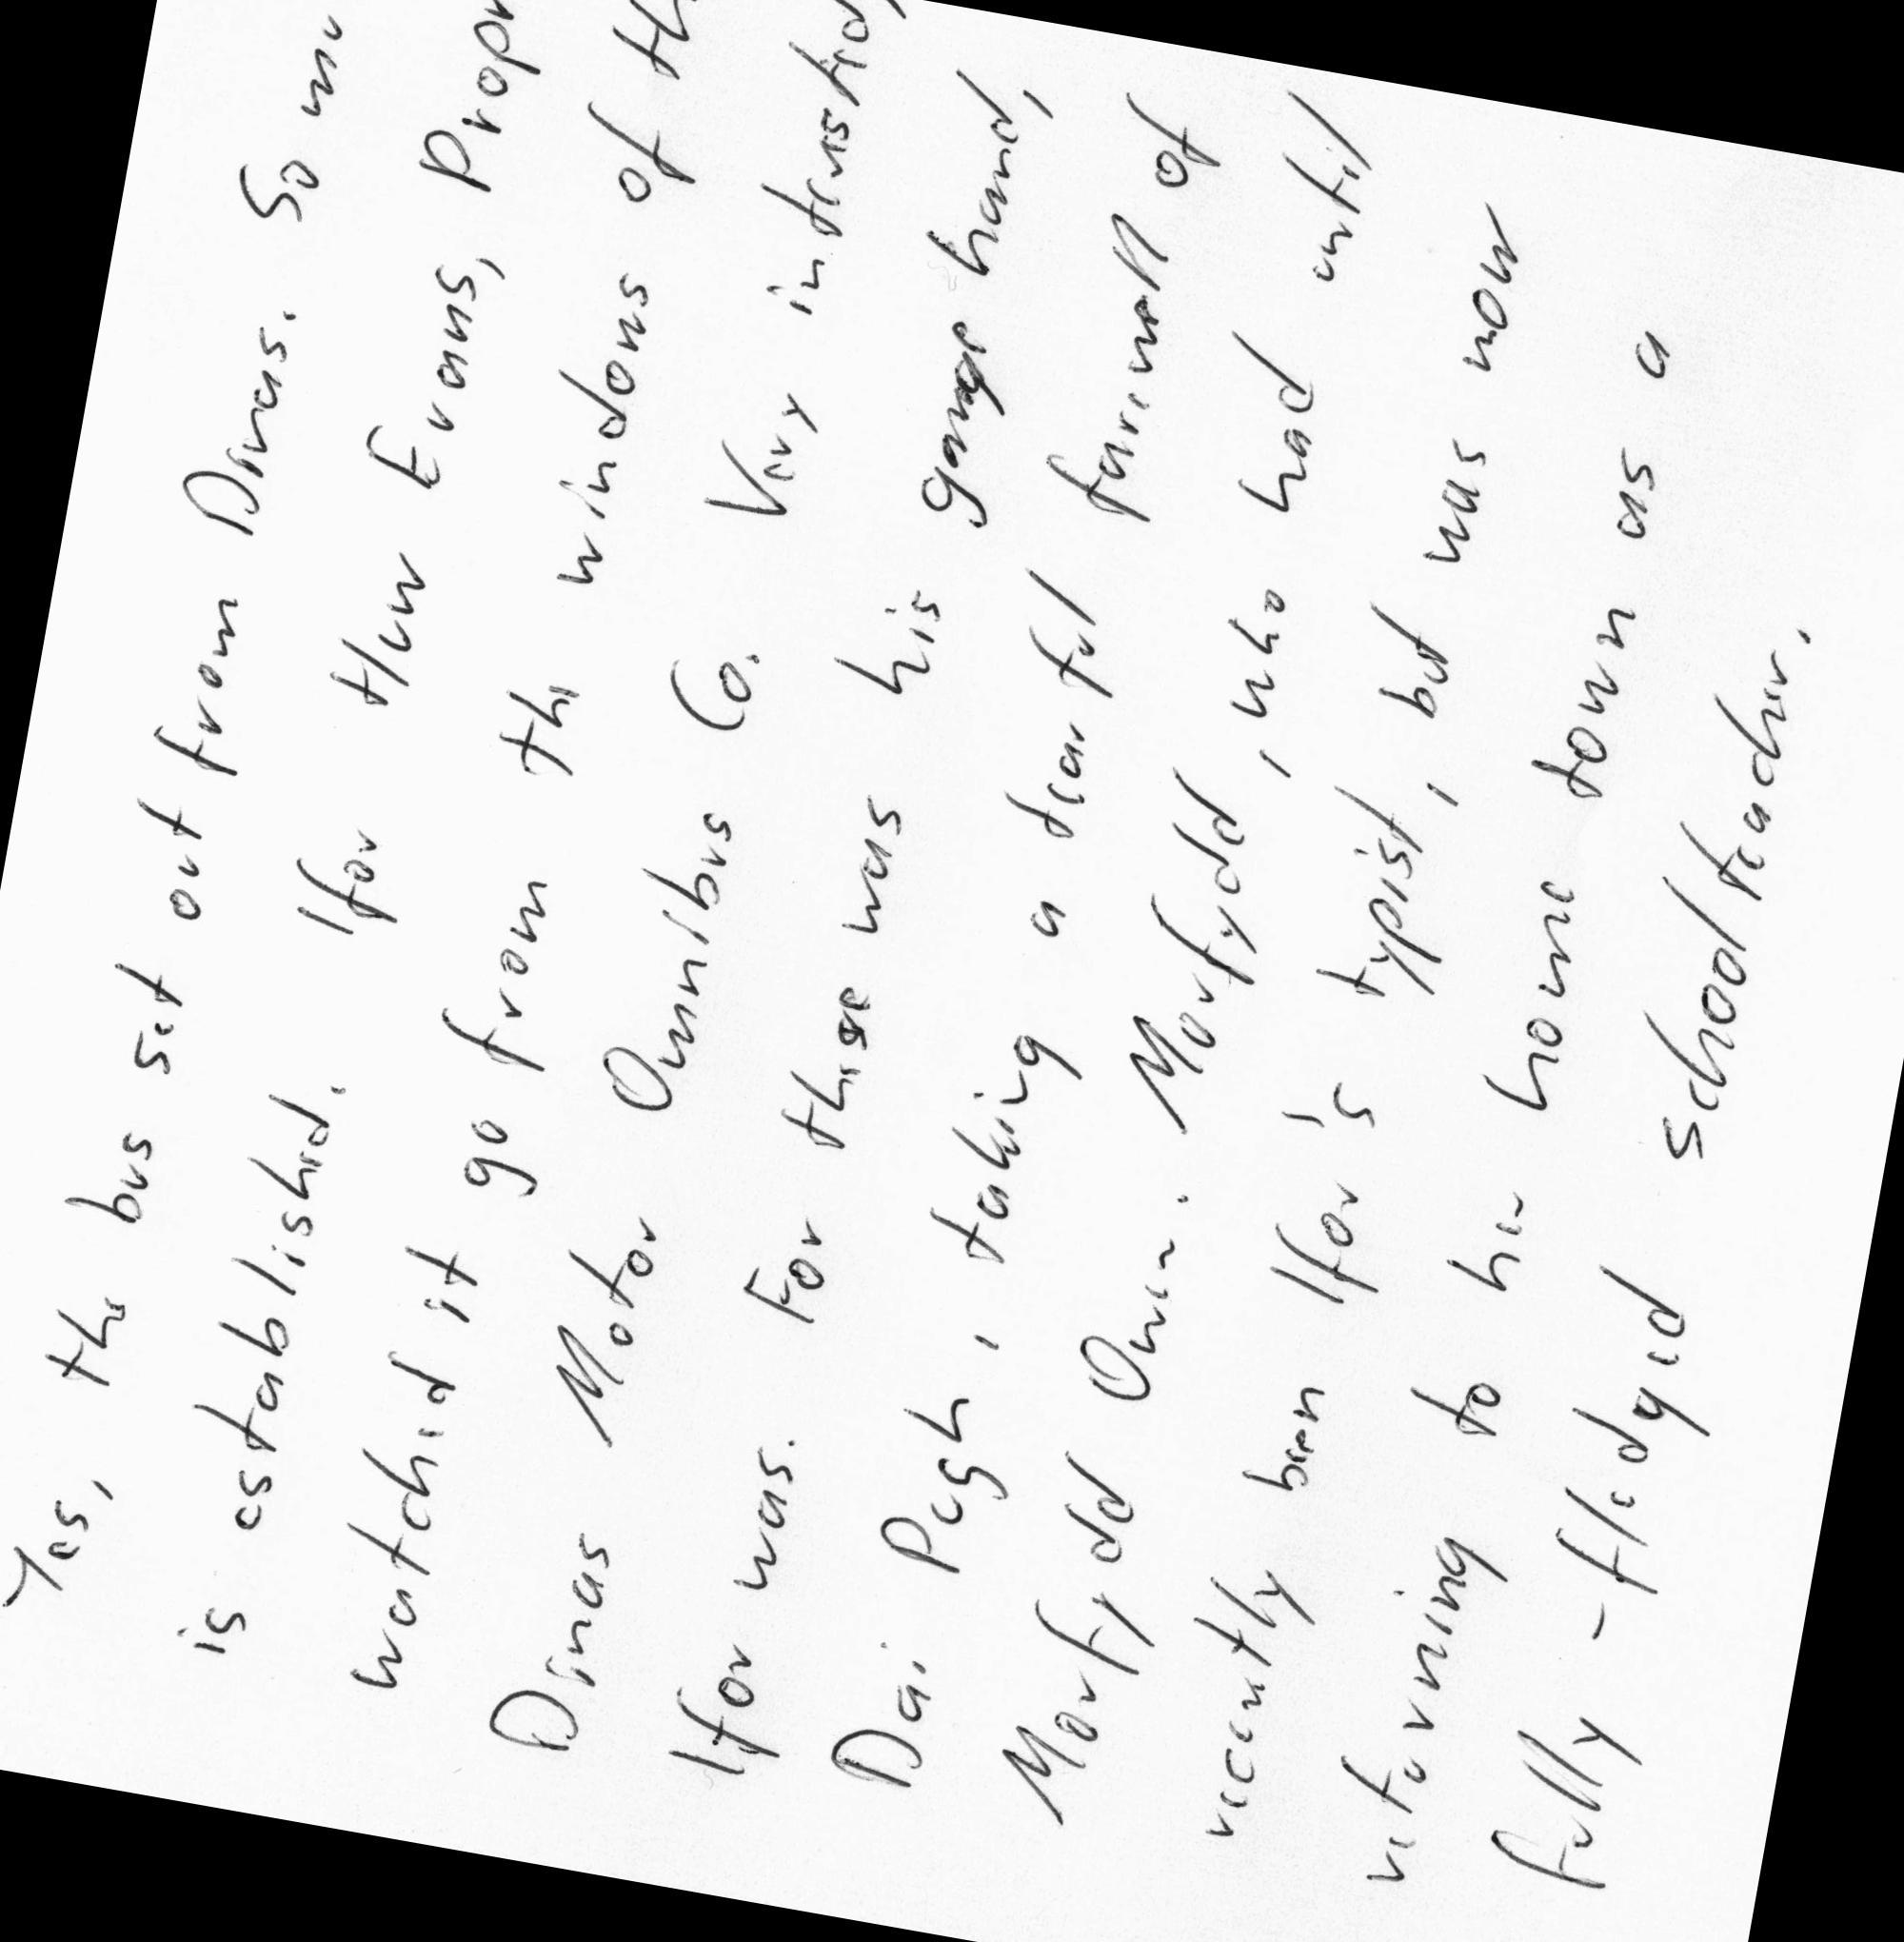 Yes, the bus set out from Dinas. So mu
is established. Ifor Huw Evans, Propr
watched it go from the windows of th
Dinas Motor Omnibus Co. Very interested,
Ifor was. For there was his garage hand,
Dai Pugh, taking a tearful farewell of
Morfydd Owen. Morfydd, who had until
recently been Ifor's typist, but was now
returning to her home town as a
fully-fledged schoolteacher.